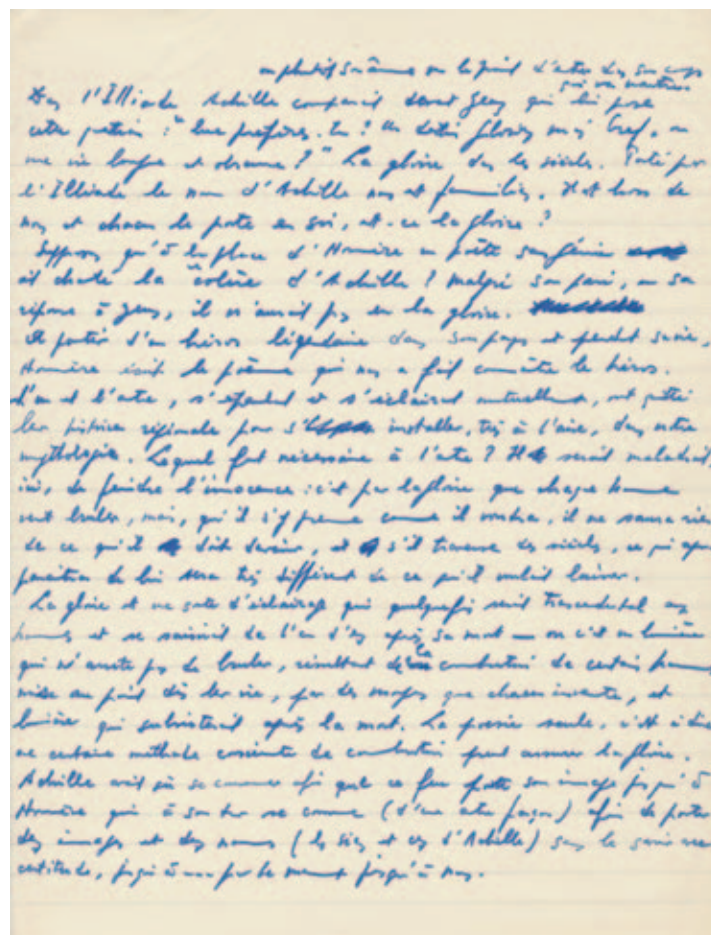 ou plutôt son âme
Dans l'Illiade Achille comparait devant Zeus qui lui pose
cette question : "Que préfères-tu ? Un destin glorieux mais bref, ou
une vie longue et obscure ?" La gloire dans les siècles. Porté par
l'Illiade le nom d'Achille nous est familier. Il est hors de
nous et chacun le porte en soi, est-ce la gloire ?
Supposons qu'à la place d'Homère un poète sans génie
ait chanté la "colère d'Achille ? Malgré son pari, ou sa
réponse à Zeus, il n'aurait pas eu la gloire.
A partir d'un héros légendaire dans son pays et pendant sa vie,
Homère écrit le poème qui nous a fait connaître le héros.
L'un et l'autre, s'épaulent et s'éclairant mutuellement, ont quitté
leur histoire régionale pour s' installer, très à l'aise, dans notre
mythologie. Lequel fut nécessaire à l'autre ? Il serait maladroit,
ici, de feindre l'innocence : c'est par la gloire que chaque homme
veut briller, mais, qu'il s'y prenne comme il voudra, il ne saura rien
de ce qu'il doit savoir, et s'il traverse les siècles, ce qui
de lui sera très différent de ce qu'il voulait laisser.
La gloire est une sorte d'éclairage qui quelquefois serait transcendental aux
hommes et se saisirait de l'un d'eux après sa mort — ou c'est une lumière
qui n'arrête pas de brûler, résultant de la combustion de certains hommes
mise au point dès leur vie, par des moyens que chacun invente, et
lumière qui subsisterait après la mort. La poésie seule, c'est à dire
une certaine méthode consciente de combustion peut assurer la gloire.
Achille avait su se consumer afin que ce feu porte son image jusqu'à
Homère qui à son tour se consume (d'une autre façon) afin de porter
des images et des noms (les siens et ceux d'Achille) sans le savoir avec
certitude, jusqu'à — pour le moment jusqu'à nous.